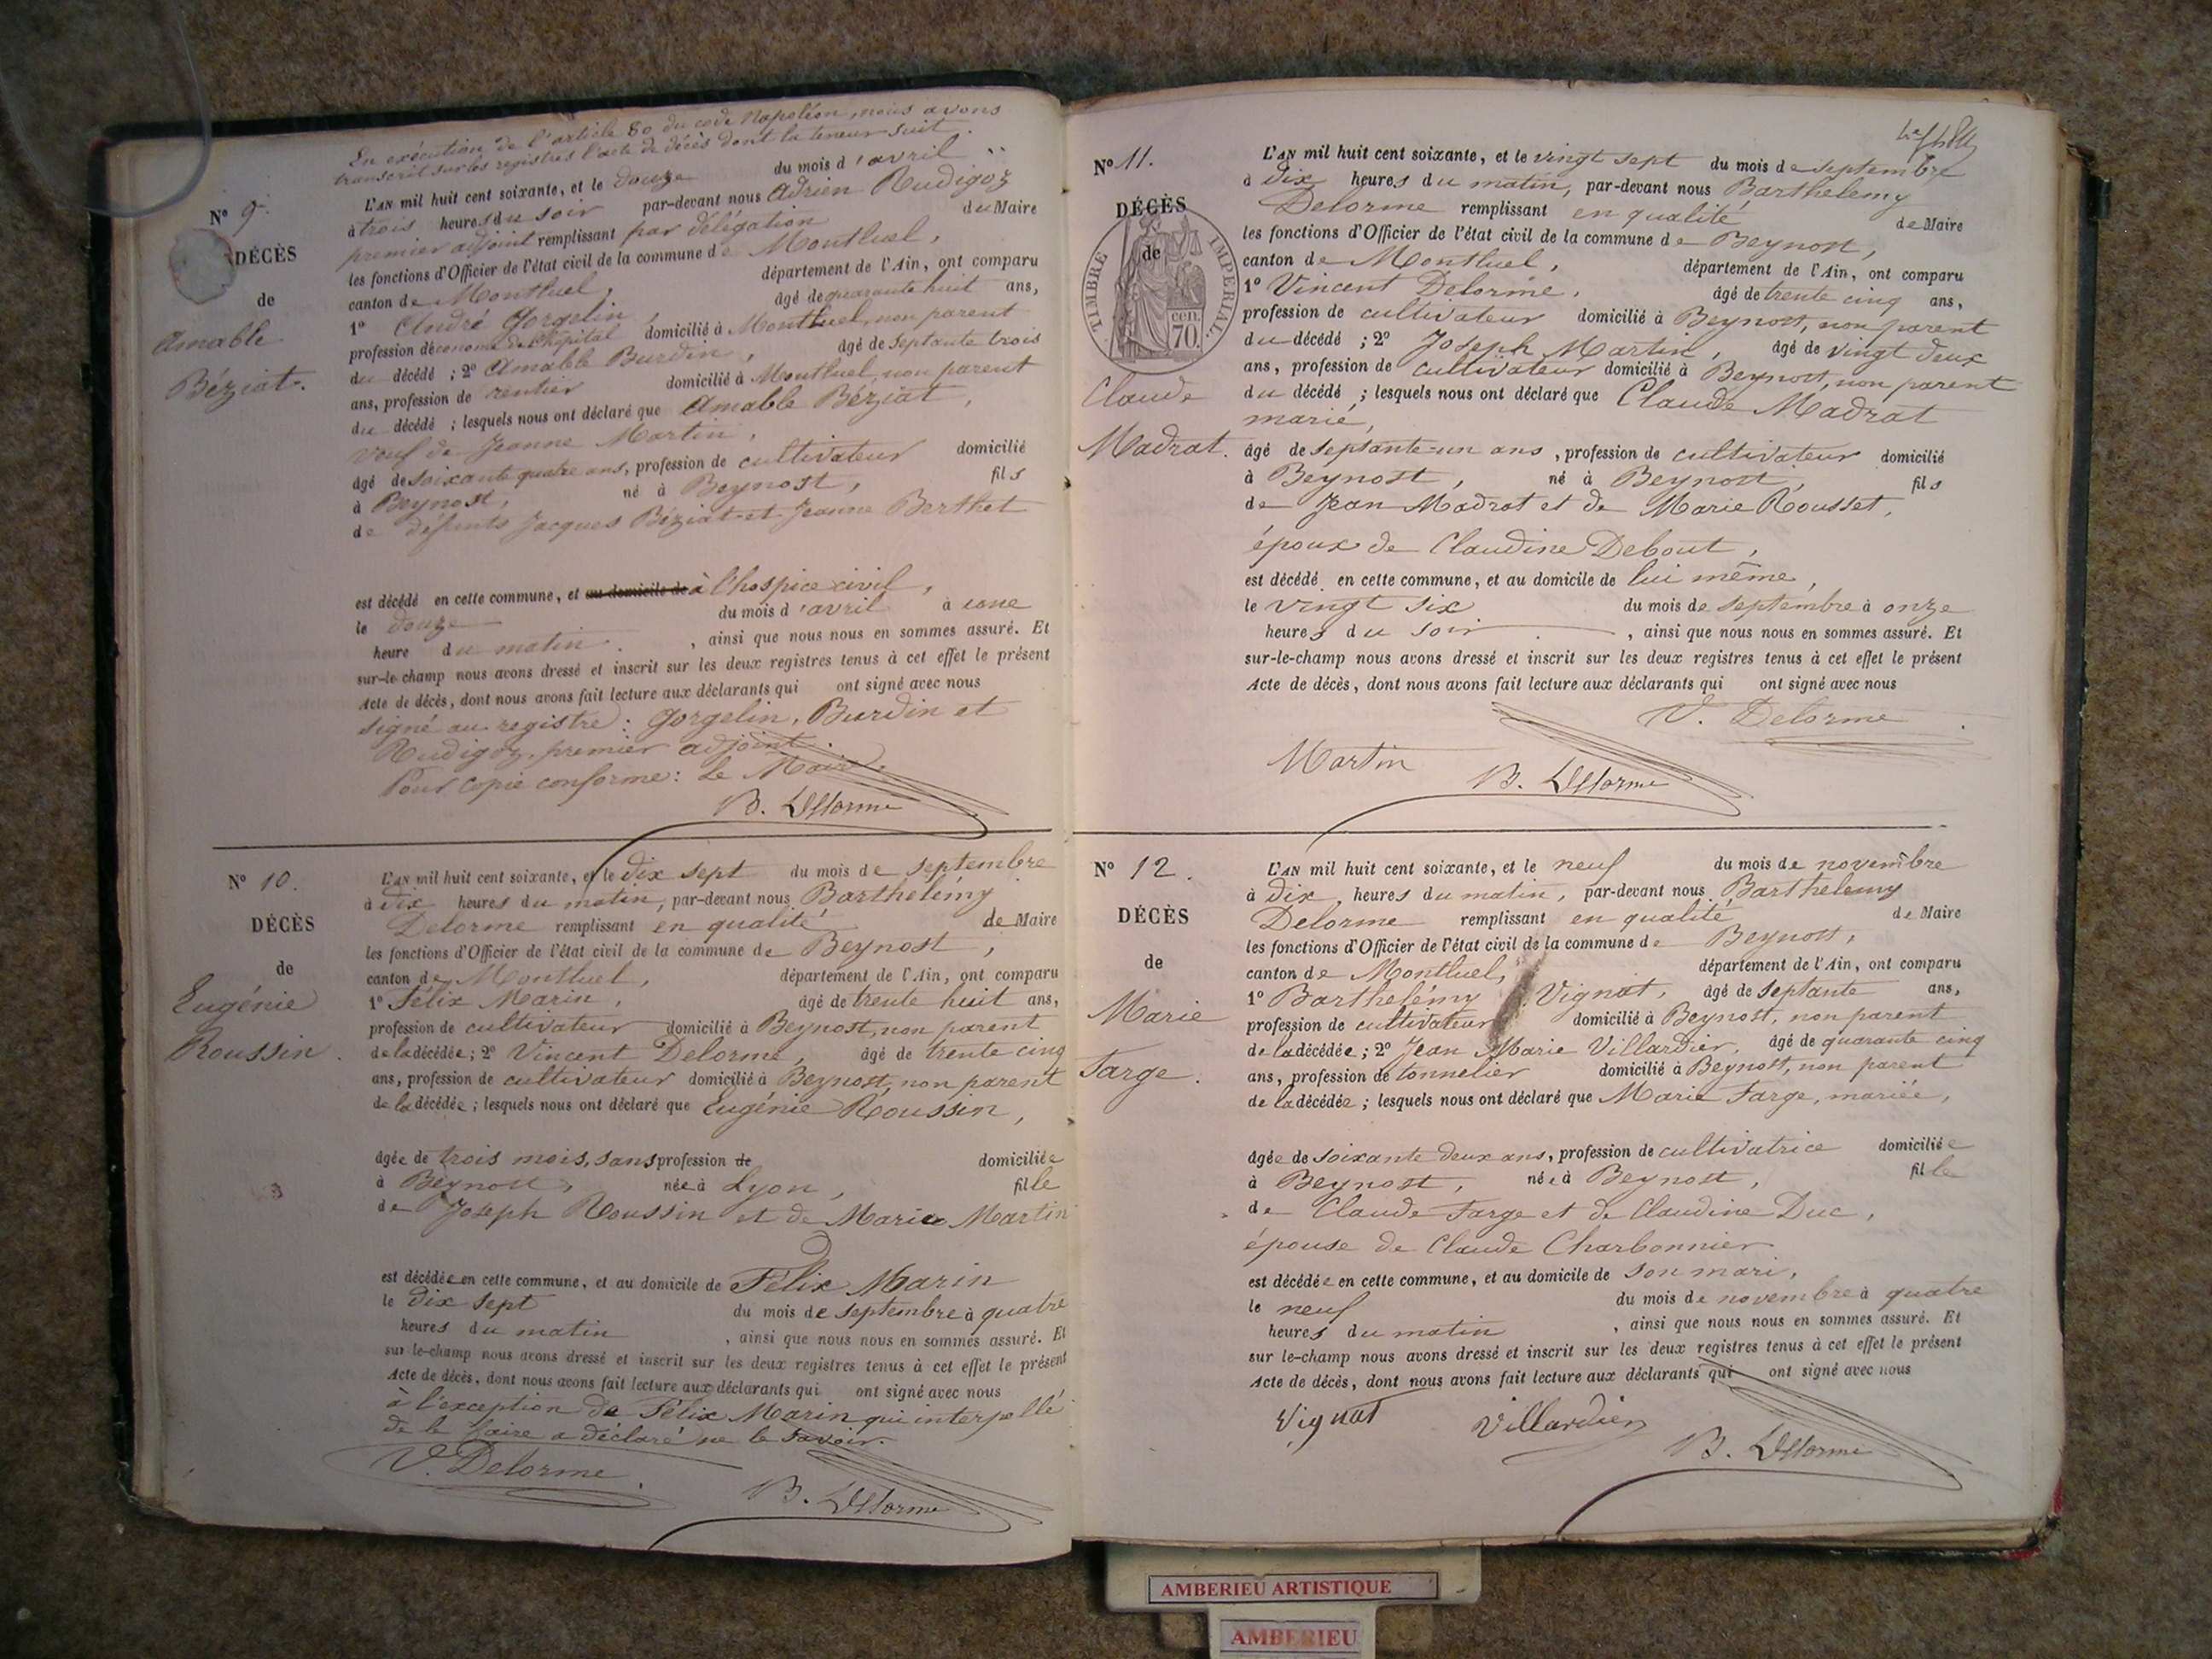 En exécution de l'article 80 du code Napoléon, nous avons
transcrit sur les registres l'acte de décès dont la teneur suit.
N° 9.
DÉCÈS
de
Amable
Béziat.
L'AN mil huit cent soixante, et le douze du mois d'avril
à trois heures du soir par-devant nous Adrien Rudigoz
premier adjoint remplissant par délégation du Maire
les fonctions d'Officier de l'état civil de la commune de Montluel,
canton de Montluel, département de l'Ain, ont comparu
1° André Gorgelin, âgé de quarante huit ans,
profession d'économe de l'hôpital domicilié à Montluel, non parent
du décédé ; 2° Amable Burdin, âgé de septante trois
ans, profession de rentier domicilié à Montluel, non parent
du décédé ; lesquels nous ont déclaré que Amable Béziat,
veuf de Jeanne Martin,
âgé de soixante quatre ans, profession de cultivateur domicilié
à Beynost, né à Beynost, fils
de défunts Jacques Béziat et Jeanne Berthet
est décédé en cette commune, et au domicile de à l'hospice civil,
le douze du mois d'avril à une
heure du matin, ainsi que nous nous en sommes assuré. Et
sur-le-champ nous avons dressé et inscrit sur les deux registres tenus à cet effet le présent
Acte de décès, dont nous avons fait lecture aux déclarants qui ont signé avec nous
signé au registre : Gorgelin, Burdin et
Rudigoz, premier adjoint.
Pour copie conforme : Le Maire.
B. Delorme
N° 10.
DÉCÈS
de
Eugénie
Roussin.
L'AN mil huit cent soixante, et le dix sept du mois de septembre
à dix heures du matin, par-devant nous Barthelémy
Delorme remplissant en qualité de Maire
les fonctions d'Officier de l'état civil de la commune de Beynost,
canton de Montluel, département de l'Ain, ont comparu
1° Félix Marin, âgé de trente huit ans,
profession de cultivateur domicilié à Beynost, non parent
de la décédée ; 2° Vincent Delorme, âgé de trente cinq
ans, profession de cultivateur domicilié à Beynost, non parent
de la décédée ; lesquels nous ont déclaré que Eugénie Roussin,
âgée de trois mois, sans profession de domiciliée
à Beynost, née à Lyon, fille
de Joseph Roussin et de Marie Martin
est décédée en cette commune, et au domicile de Félix Marin
le dix sept du mois de septembre à quatre
heures du matin, ainsi que nous nous en sommes assuré. Et
sur le-champ nous avons dressé et inscrit sur les deux registres tenus à cet effet le présent
Acte de décès, dont nous avons fait lecture aux déclarants qui ont signé avec nous
à l'exception de Félix Marin qui interpellé
de le faire a déclaré ne le savoir.
V. Delorme
B. Delorme
N° 11.
DÉCÈS
de
TIMBRE IMPERIAL.
cen.
70.
Claude
Madrat.
L'AN mil huit cent soixante, et le vingt sept du mois de septembre
à dix heures du matin, par-devant nous Barthelemy
Delorme remplissant en qualité de Maire
les fonctions d'Officier de l'état civil de la commune de Beynost,
canton de Montluel, département de l'Ain, ont comparu
1° Vincent Delorme, âgé de trente cinq ans,
profession de cultivateur domicilié à Beynost, non parent
du décédé ; 2° Joseph Martin, âgé de vingt deux
ans, profession de cultivateur domicilié à Beynost, non parent
du décédé ; lesquels nous ont déclaré que Claude Madrat
marié,
âgé de septante-un ans, profession de cultivateur domicilié
à Beynost, né à Beynost, fils
de Jean Madrat et de Marie Rousset,
époux de Claudine Debout,
est décédé en cette commune, et au domicile de lui même,
le vingt six du mois de septembre à onze
heures du soir, ainsi que nous nous en sommes assuré. Et
sur-le-champ nous avons dressé et inscrit sur les deux registres tenus à cet effet le présent
Acte de décès, dont nous avons fait lecture aux déclarants qui ont signé avec nous
V. Delorme
Martin
B. Delorme
N° 12.
DÉCÈS
de
Marie
Farge.
L'AN mil huit cent soixante, et le neuf du mois de novembre
à dix heures du matin, par-devant nous Barthelemy
Delorme remplissant en qualité de Maire
les fonctions d'Officier de l'état civil de la commune de Beynost,
canton de Montluel, département de l'Ain, ont comparu
1° Barthelémy Vignat, âgé de septante ans,
profession de cultivateur domicilié à Beynost, non parent
de la décédée ; 2° Jean Marie Villardier, âgé de quarante cinq
ans, profession de tonnelier domicilié à Beynost, non parent
de la décédée ; lesquels nous ont déclaré que Marie Farge, mariée,
âgée de soixante deux ans, profession de cultivatrice domiciliée
à Beynost, née à Beynost, fille
de Claude Farge et de Claudine Duc,
épouse de Claude Charbonnier
est décédée en cette commune, et au domicile de son mari,
le neuf du mois de novembre à quatre
heures du matin, ainsi que nous nous en sommes assuré. Et
sur le-champ nous avons dressé et inscrit sur les deux registres tenus à cet effet le présent
Acte de décès, dont nous avons fait lecture aux déclarants qui ont signé avec nous
Vignat Villardier
B. Delorme
AMBERIEU ARTISTIQUE
AMBERIEU